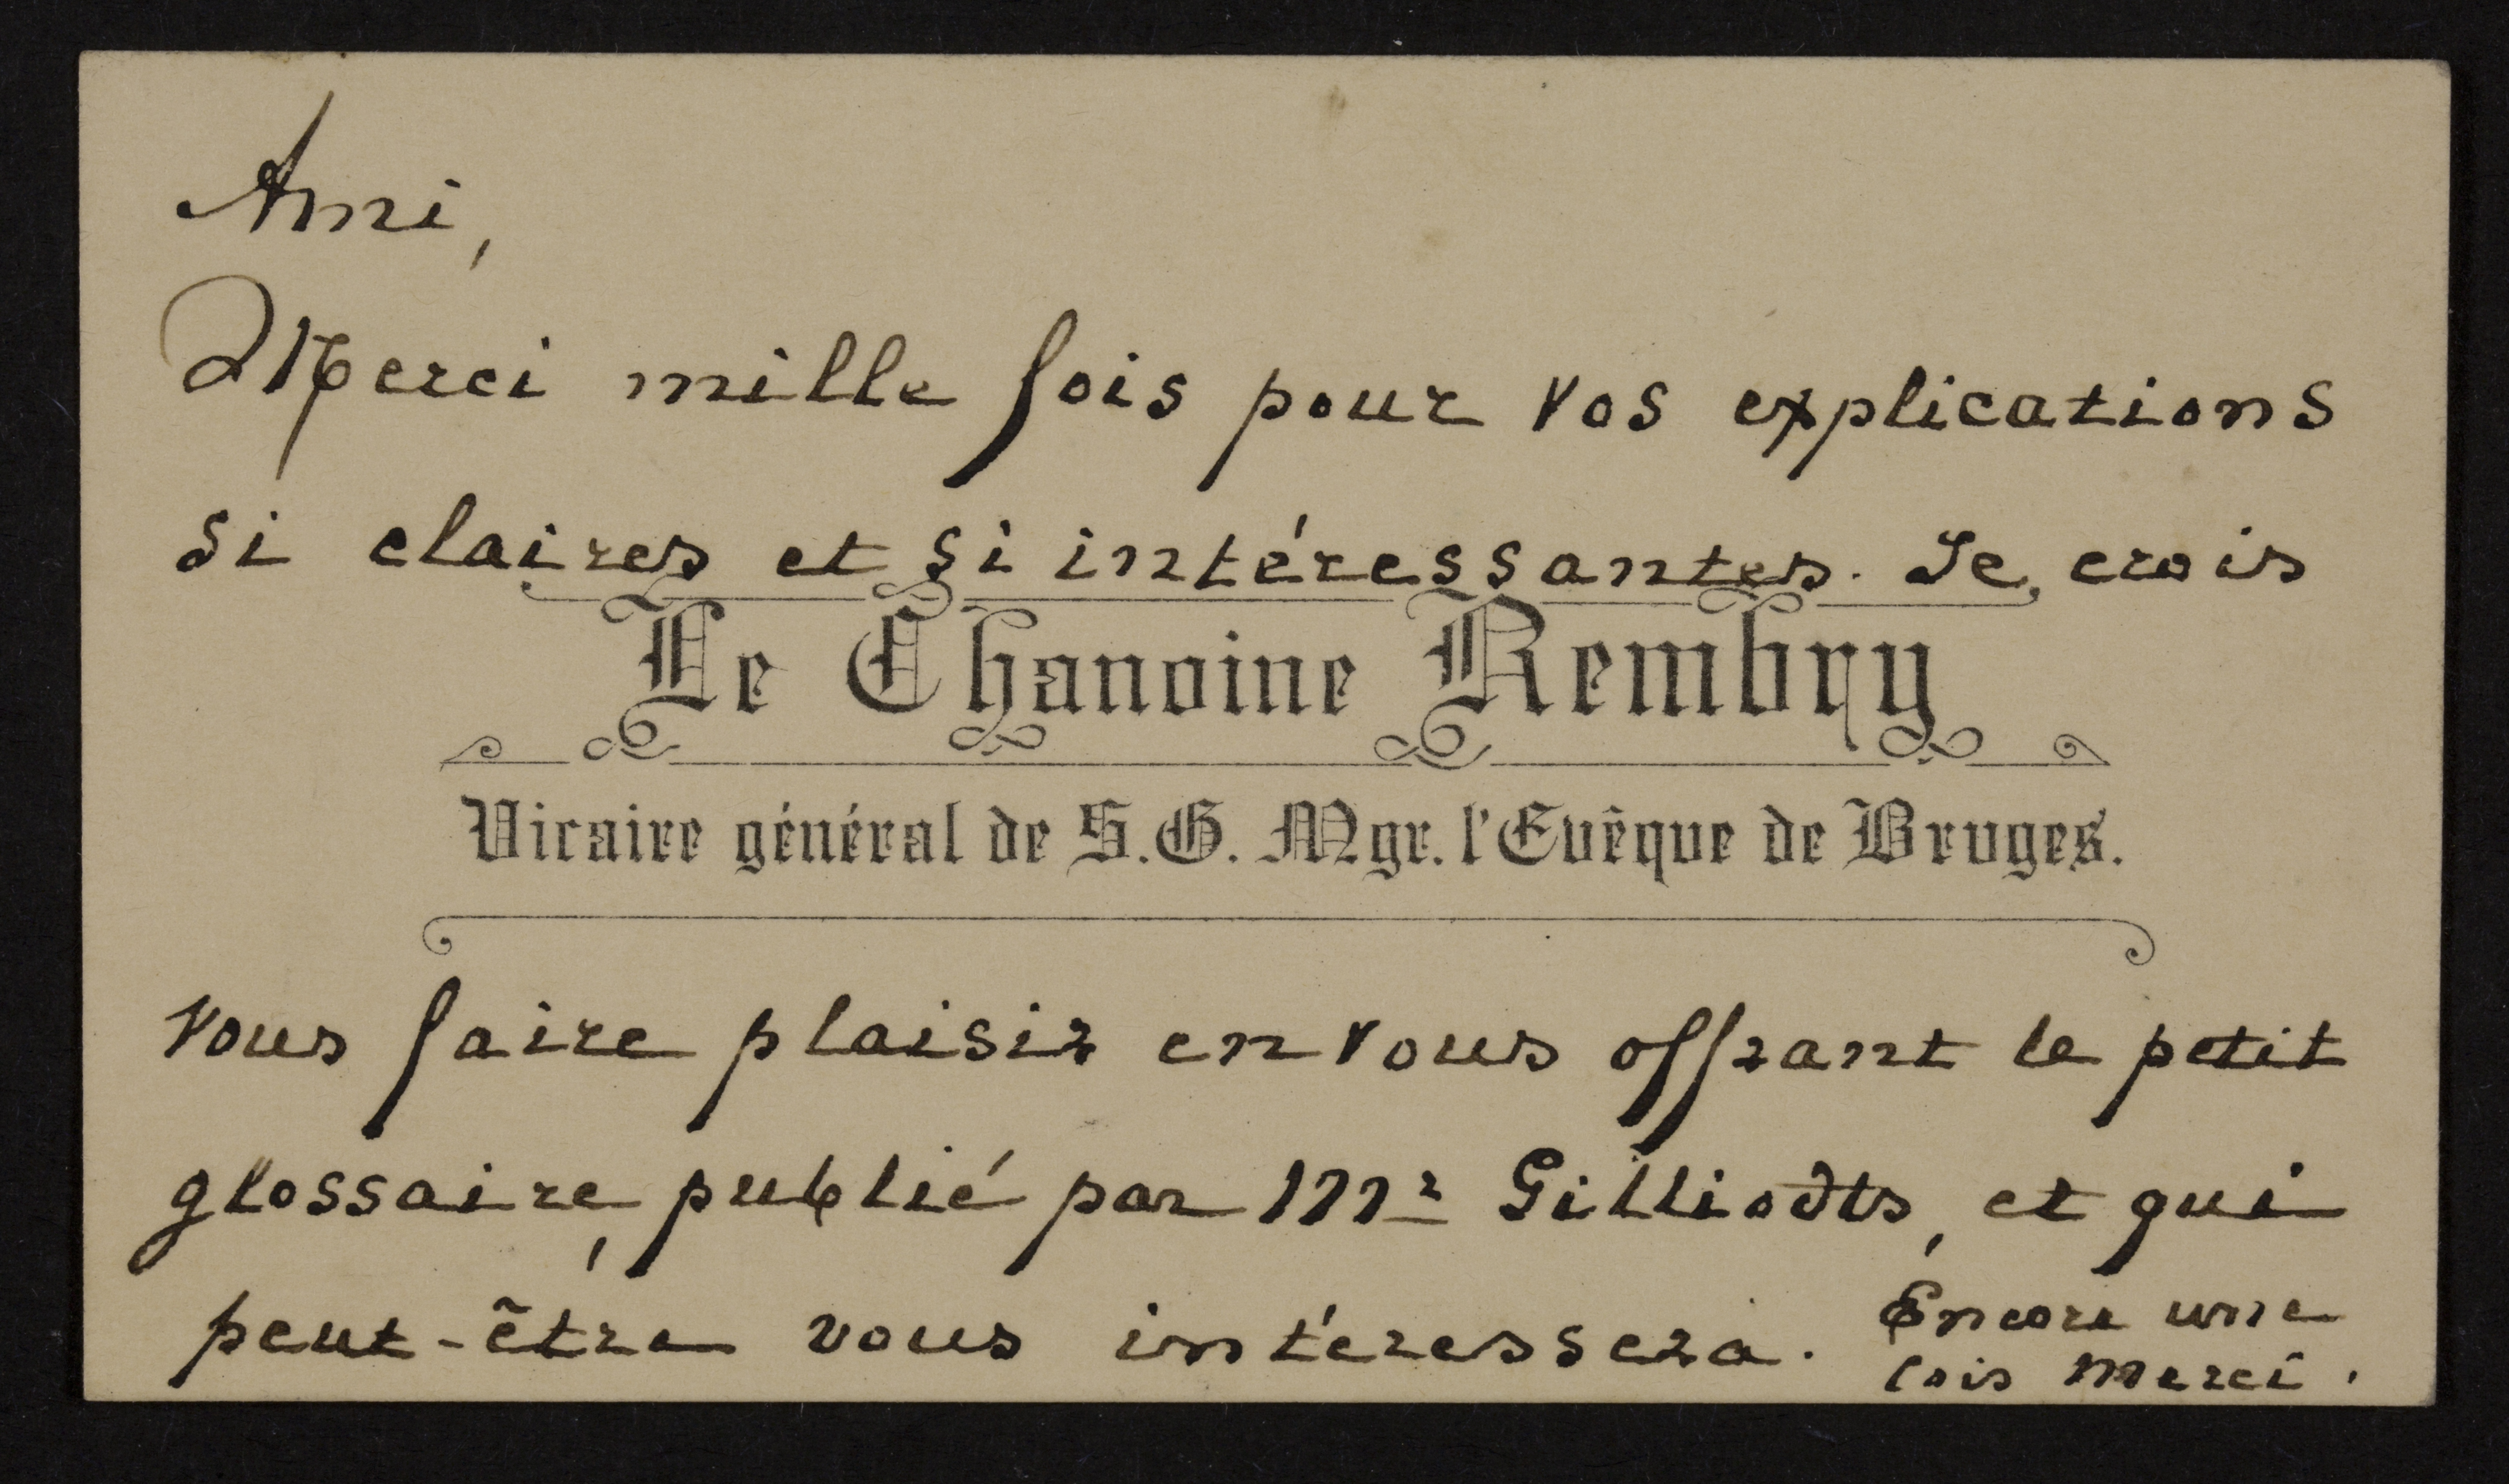 Ami,
Merci mille fois pour vos explications
si claires et si intéressantes. Je crois
Le Chanoine Rembry
Vicaire général de S.G. Mgr. l'Evêque de Bruges.
vous faire plaisir en vous offrant le petit
glossaire, publié par Mr Gilliodts, et qui
peut-être vous intéressera. Encore une
fois merci.